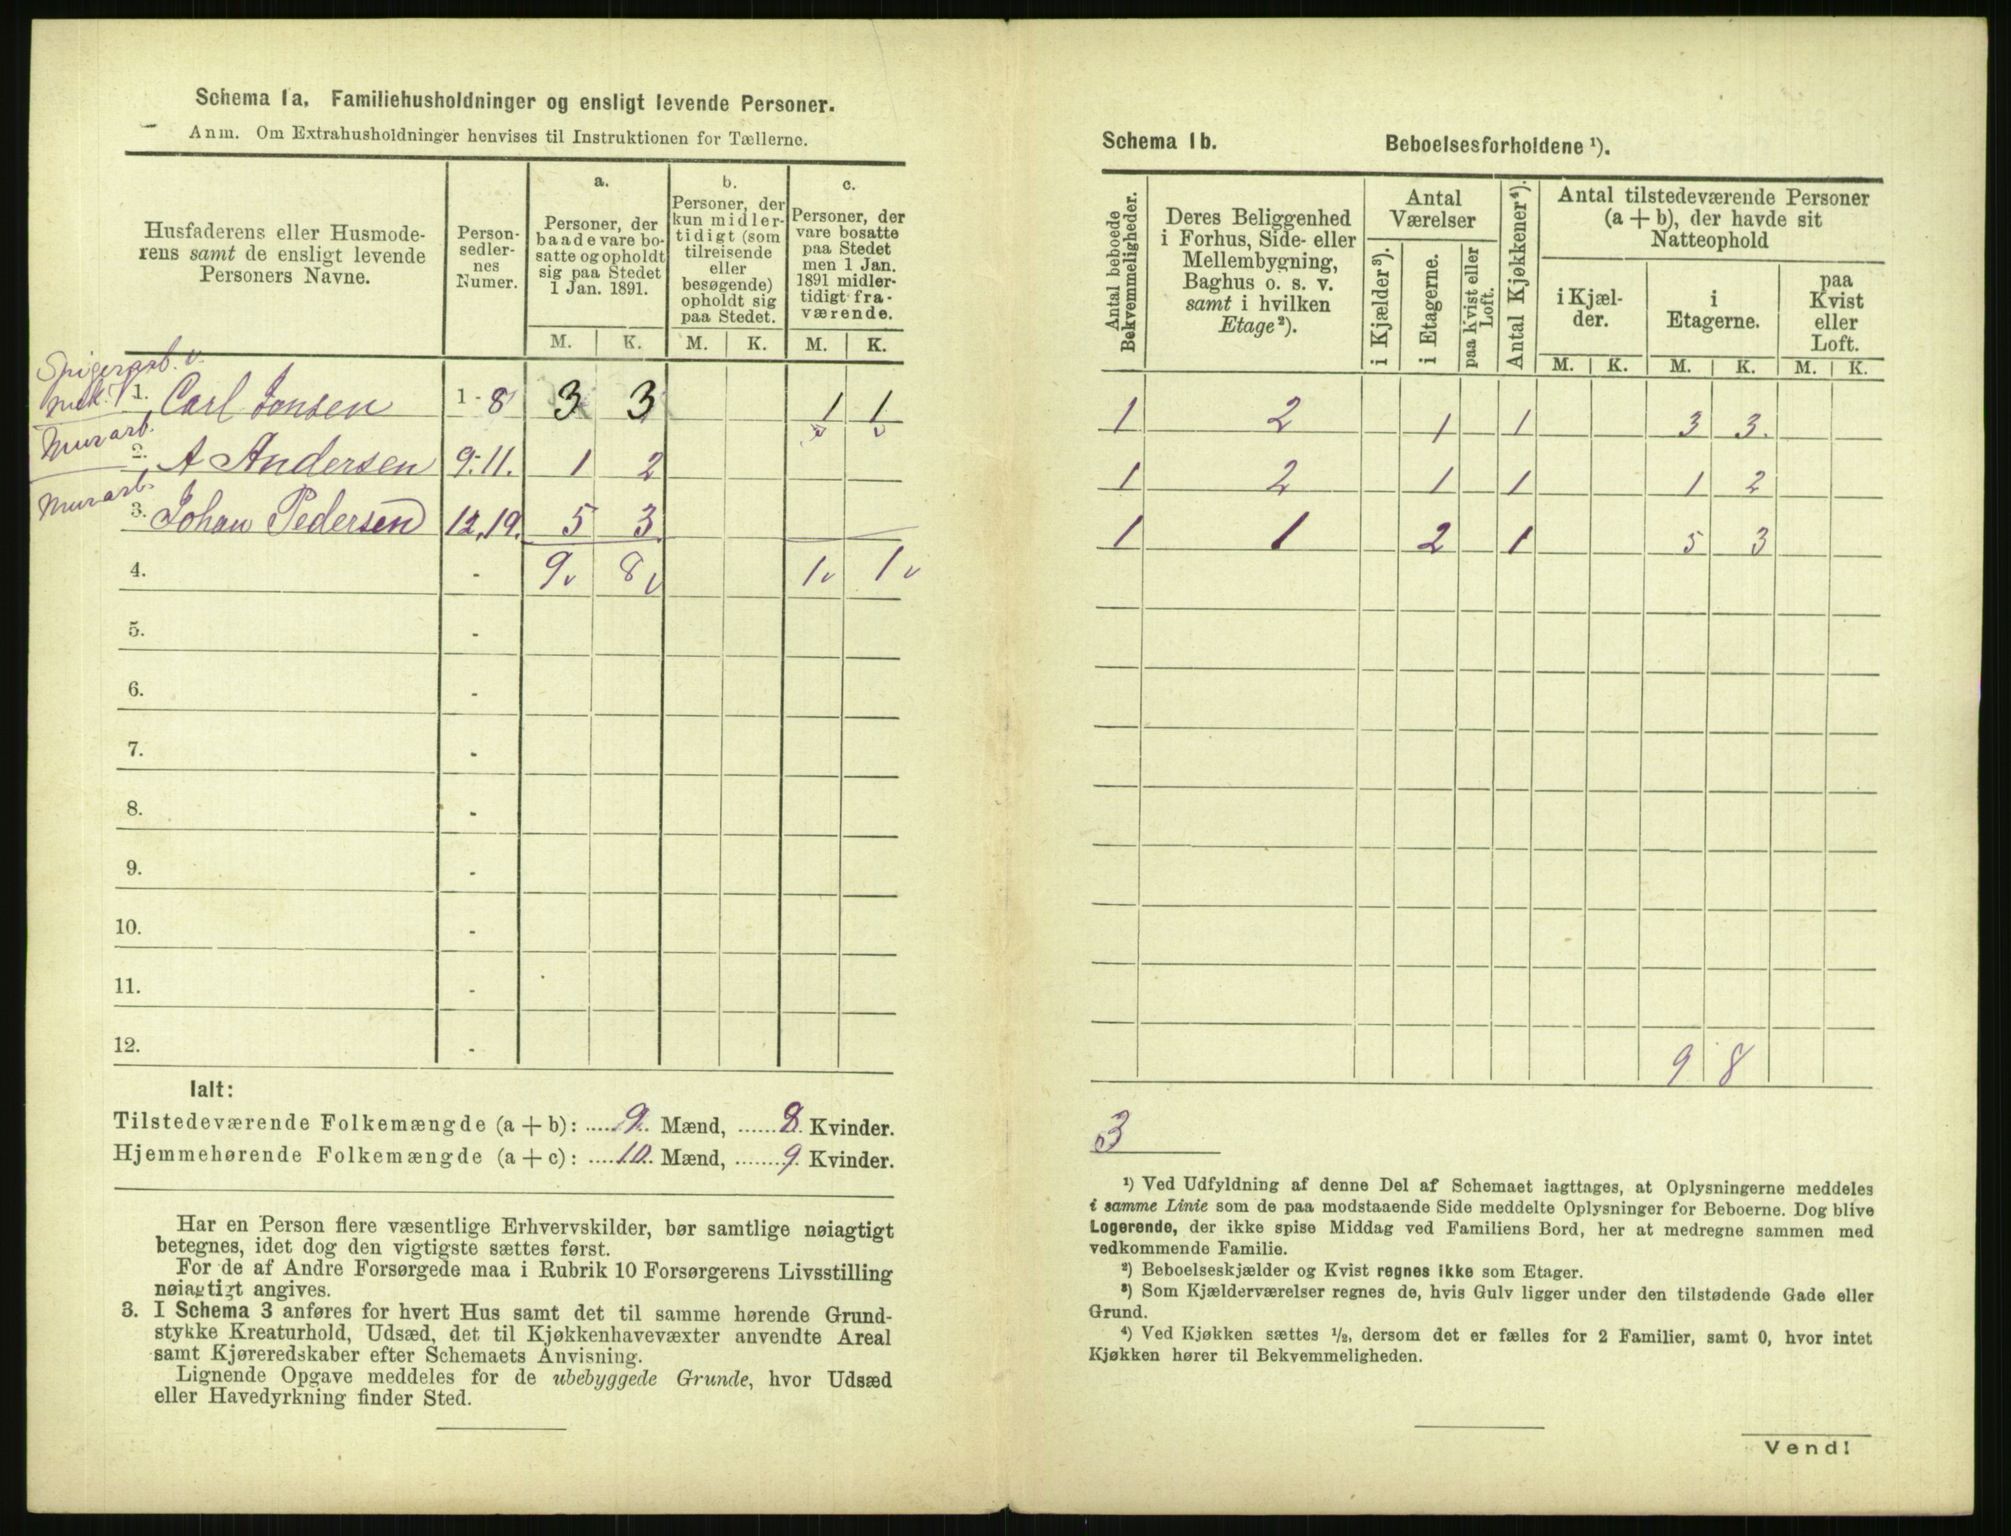 Schema 1a. Familiehusholdninger og ensligt levende Personer.
Anm. Om Extrahusholdninger henvises til Instruktionen for Tællerne.
Husfaderens eller Husmoderens samt de ensligt levende Personers Navne.
Person-sedler-nes Numer.
a.
Personer, der baade vare bosatte og opholdt sig paa Stedet 1 Jan. 1891.
b.
Personer, der kun midlertidigt (som tilreisende eller besøgende) opholdt sig paa Stedet.
c.
Personer, der vare bosatte paa Stedet men 1 Jan. 1891 midlertidigt fraværende.
M. K. M. K. M. K.
Spigerarb. v.
mek.
1. Carl Jonsen 1 - 8 3 3 1 1
Murarb.
2. A Andersen 9-11. 1 2
Murarb.
3. Johan Pedersen 12,19. 5 3
4. - 9 v 8 v 1 v 1 v
5. -
6. -
7. -
8. -
9. -
10. -
11. -
12. -
Ialt:
Tilstedeværende Folkemængde (a + b): 9 Mænd, 8 Kvinder.
Hjemmehørende Folkemængde (a + c): 10 Mænd, 9 Kvinder.
Har en Person flere væsentlige Erhvervskilder, bør samtlige nøiagtigt
betegnes, idet dog den vigtigste sættes først.
For de af Andre Forsørgede maa i Rubrik 10 Forsørgerens Livsstilling
nøiagtigt angives.
3. I Schema 3 anføres for hvert Hus samt det til samme hørende Grund-
stykke Kreaturhold, Udsæd, det til Kjøkkenhavevæxter anvendte Areal
samt Kjøreredskaber efter Schemaets Anvisning.
Lignende Opgave meddeles for de ubebyggede Grunde, hvor Udsæd
eller Havedyrkning finder Sted.
Schema 1b. Beboelsesforholdene ¹).
Antal beboede Bekvemmeligheder.
Deres Beliggenhed i Forhus, Side- eller Mellembygning, Baghus o. s. v. samt i hvilken Etage ²).
Antal Værelser
i Kjælder ³).
i Etagerne.
paa Kvist eller Loft.
Antal Kjøkkener ⁴).
Antal tilstedeværende Personer (a + b), der havde sit Natteophold
i Kjælder.
i Etagerne.
paa Kvist eller Loft.
M. K. M. K. M. K.
1 2 1 1 3 3.
1 2 1 1 1 2
1 1 2 1 5 3
9 8
3
¹) Ved Udfyldning af denne Del af Schemaet iagttages, at Oplysningerne meddeles
i samme Linie som de paa modstaaende Side meddelte Oplysninger for Beboerne. Dog blive
Logerende, der ikke spise Middag ved Familiens Bord, her at medregne sammen med
vedkommende Familie.
²) Beboelseskjælder og Kvist regnes ikke som Etager.
³) Som Kjælderværelser regnes de, hvis Gulv ligger under den tilstødende Gade eller
Grund.
⁴) Ved Kjøkken sættes ½, dersom det er fælles for 2 Familier, samt 0, hvor intet
Kjøkken hører til Bekvemmeligheden.
Vend!